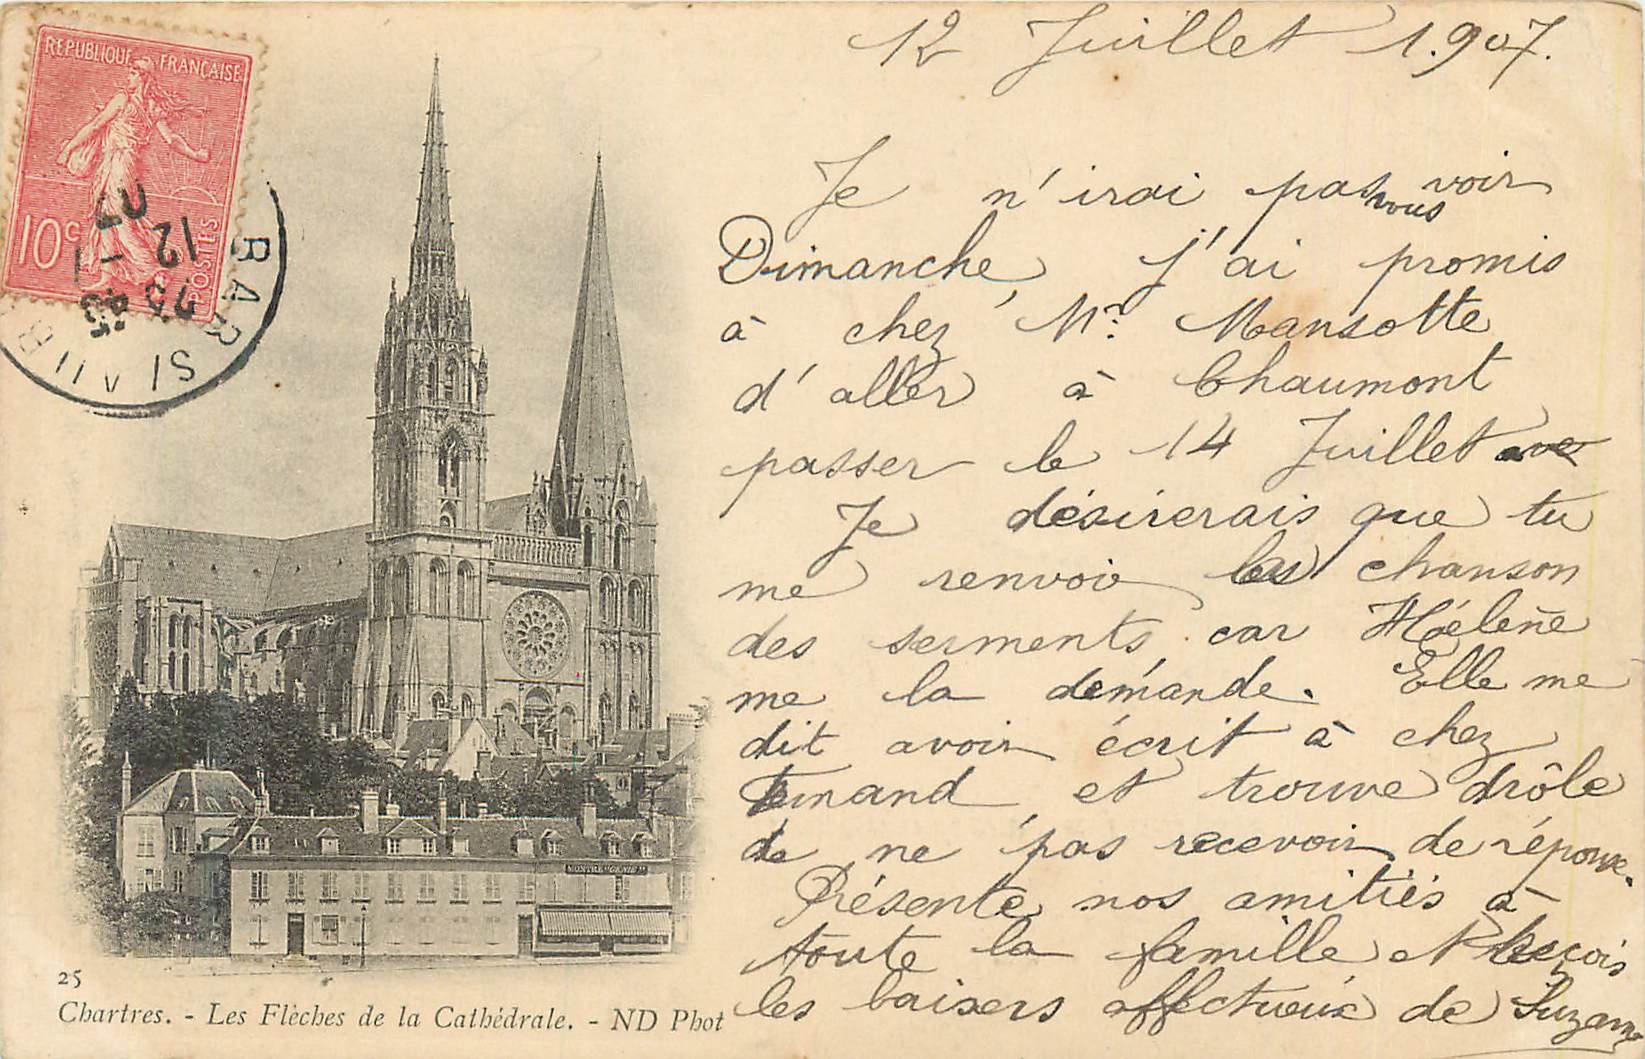 REPUBLIQUE FRANÇAISE
10c POSTES
BAR S/AUBE
12 Juillet 1.907.
Je n'irai pas vous voir
Dimanche, j'ai promis
à chez Mr. Mansotte
d'aller à Chaumont
passer le 14 Juillet ave
Je désirerais que tu
me renvoie les chanson
des serments car Hélène
me la demande. Elle me
dit avoir écrit à chez
et trouve drôle
de ne pas recevoir de réponse.
Présente nos amitiés à
toute la famille et Reçois
les baisers affectueux de Suzanne
MONTRE "OMEGA"
25
Chartres. - Les Flèches de la Cathédrale. - ND Phot